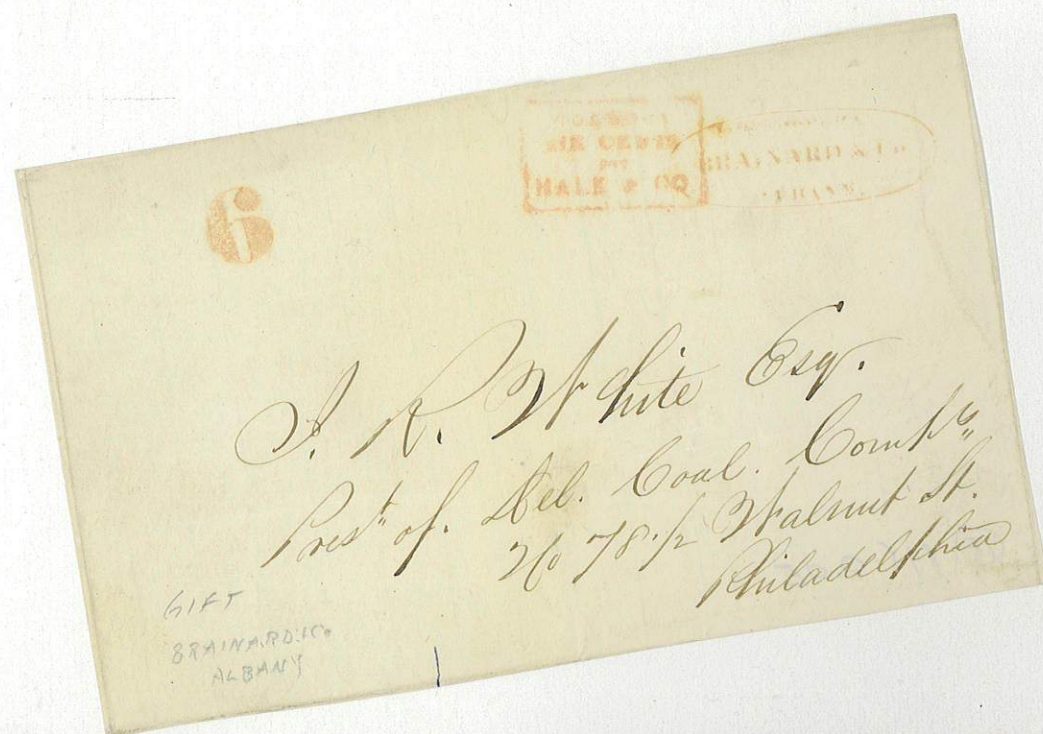 6
SIX CENTS
HALE & CO
BRAINARD & Co
J. R. White Esq.
Pres.t of. Del. Coal. Comp.y
No 78.1/2 Walnut St.
Philadelphia
GIFT
BRAINARD & Co
ALBANY